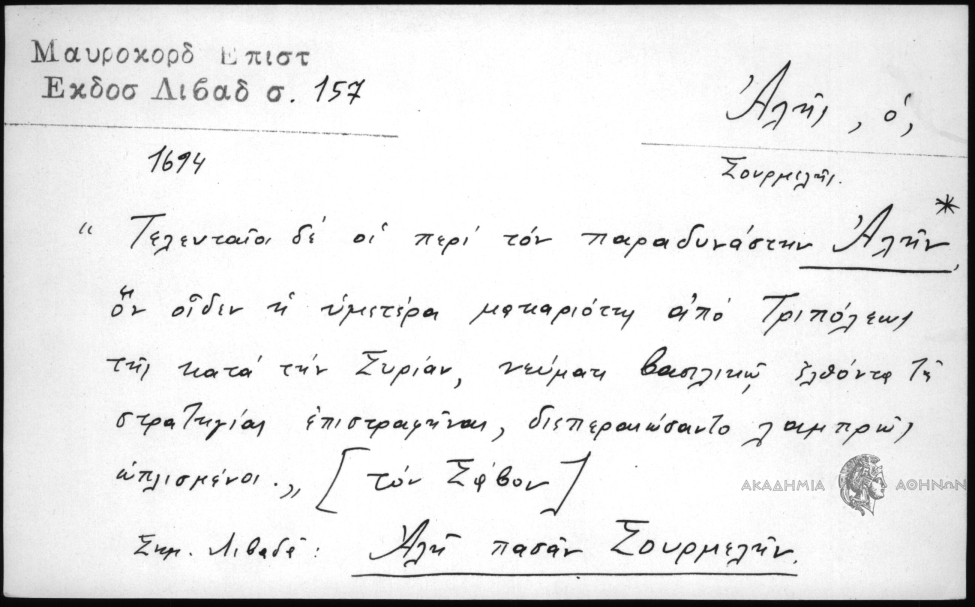 Μαυροκορδ Επιστ
Εκδοσ Λιβαδ σ. 157
Ἀλῆς, ὁ,
1694
Σουρμελῆς.
“ Τελευταῖοι δέ οἱ περί τόν παραδυνάστην Ἀλῆν *,
ὅν οἶδεν ἡ ὑμετέρα μακαριότης ἀπό Τριπόλεως
τῆς κατά τήν Συρίαν, νεύματι βασιλικῷ ἐλθόντα τῆς
στρατηγίας ἐπιστραφῆναι, διεπεραιώσαντο λαμπρῶς
ὡπλισμένοι.„ [τόν Σάβον]
ΑΚΑΔΗΜΙΑ ΑΘΗΝΩΝ
Σημ. Λιβαδᾶ: Ἀλῆ πασᾶν Σουρμελῆν.